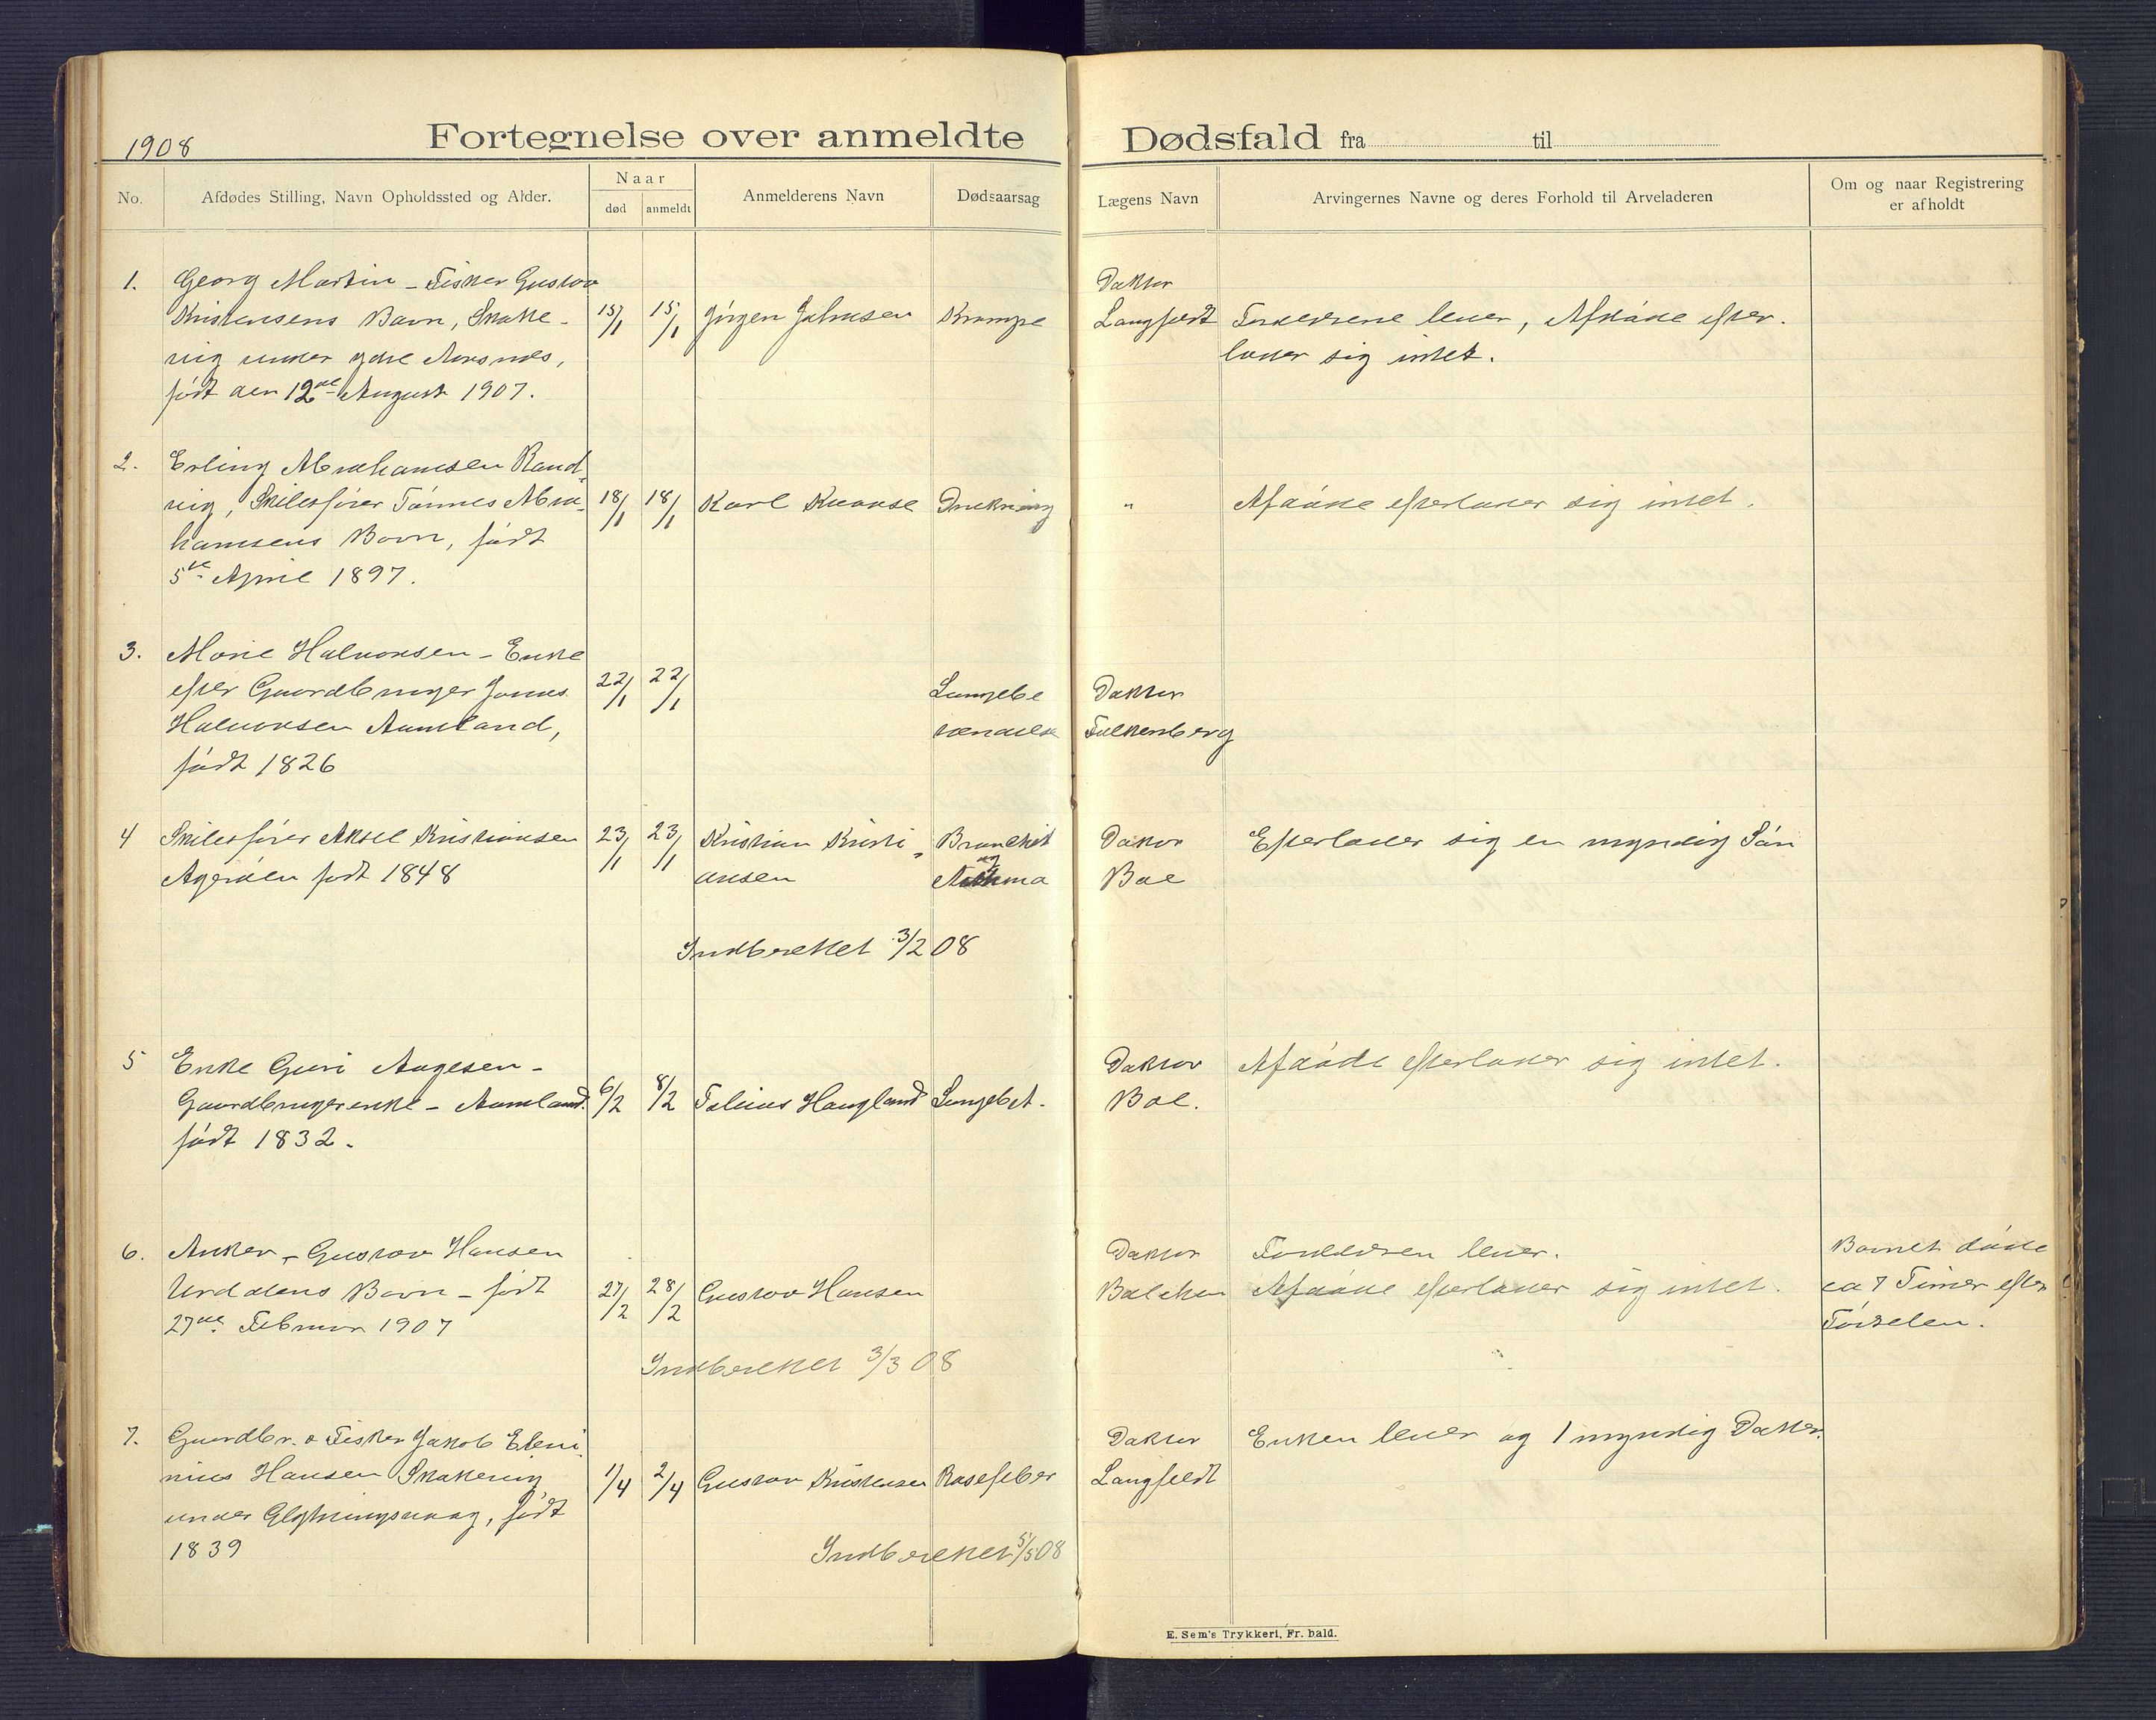 1908
Fortegnelse over anmeldte Dødsfald fra til
No.
Afdødes Stilling, Navn Opholdssted og Alder.
Naar
død
anmeldt
Anmelderens Navn
Dødsaarsag
Lægens Navn
Arvingernes Navne og deres Forhold til Arveladeren
Om og naar Registrering
er afholdt
1. Georg Martin - Fisker Gustav
Kristensens Barn, Skalle-
vig under ydre Aarsnes,
født den 12te August 1907.
15/1 15/1 Jørgen Johnsen Krampe
Doktor
Langfeldt
Forældrene lever, Afdøde efter-
lader sig intet.
2. Erling Abrahamsen Rand-
vig, Skibsfører Tønnes Abra-
hamsens Barn, født
5te April 1897.
18/1 18/1 Karl Knudse Drukning
"
Afdøde efterlader sig intet.
3. Marie Halvorsen - Enke
efter Gaardbruger Jonas
Halvorsen Aamland,
født 1826
22/1 22/1
Lungebe
tændelse
Doktor
Falkenberg
4 Skibsfører Aksel Kristiansen
Agerøen født 1848
23/1 23/1 Kristian Kristi-
ansen
Bronchit
og
Astma
Doktor
Boe
Efterlader sig en myndig Søn
Indberettet 3/2 08
5 Enke Guri Aagesen -
Gaardbrugerenke - Aamland.
født 1832.
6/2 8/2 Tobias Haugland Lungebet.
Doktor
Boe.
Afdøde efterlader sig intet.
6. Anker - Gustav Hansen
Urddalens Barn - født
27de Februar 1907
27/2 28/2 Gustav Hansen
Doktor
Balchen
Forældren lever.
Afdøde efterlader sig intet.
Barnet døde
ca 7 Timer efter
Fødselen.
Indberettet 3/3 08
7. Gaardbr. & Fisker Jakob Eleni-
nius Hansen Skallevig
under Glybningsvaag, født
1839
1/4 2/4 Gustav Kristensen Rosefeber
Doktor
Langfeldt
Enken lever og 1 myndig Datter.
Indberettet 5/5 08
E. Sem's Trykkeri, Fr. hald.